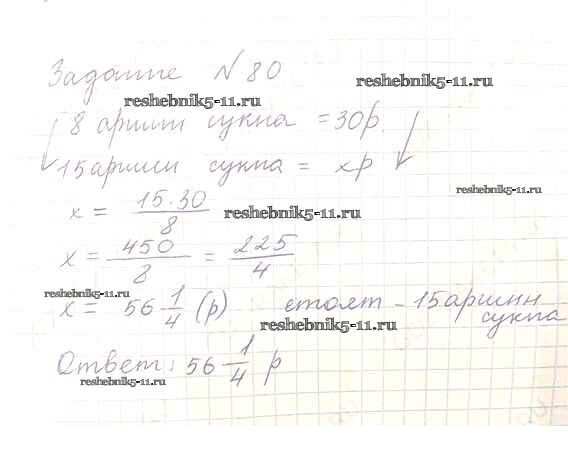 Задание № 80
reshebnik5-11.ru
reshebnik5-11.ru
8 аршин сукна = 30р.
15 аршин сукна = xр
reshebnik5-11.ru
x = 15·30/8
reshebnik5-11.ru
x = 450/8 = 225/4
reshebnik5-11.ru
x = 56 1/4 (р) стоят - 15 аршин
сукна
reshebnik5-11.ru
Ответ: 56 1/4 р
reshebnik5-11.ru